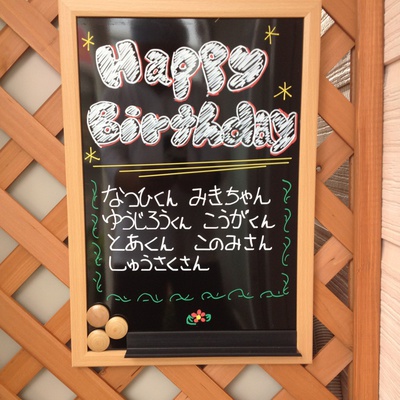 Happy
Birthday
なつひくん みきちゃん
ゆうじろうくん こうがくん
とあくん このみさん
しゅうさくさん